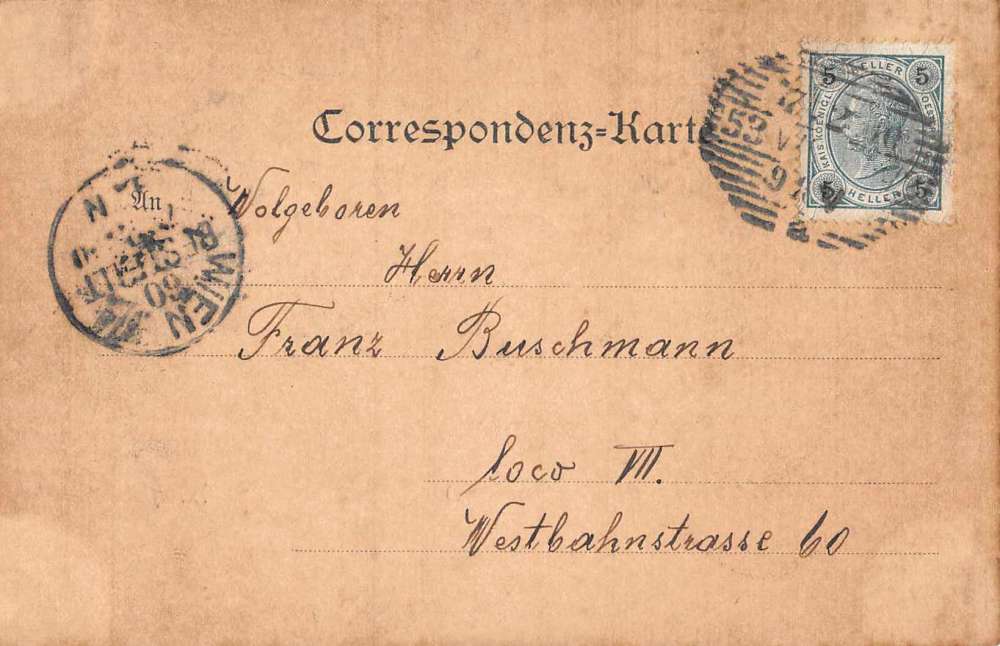 Correspondenz=Karte
An
Wolgeboren
Herrn
Franz Buschmann
loco VII.
Westbahnstrasse 60
5 HELLER 5
KAIS. KOENIGL.
5 HELLER 5
53
WIEN
BESTELLT